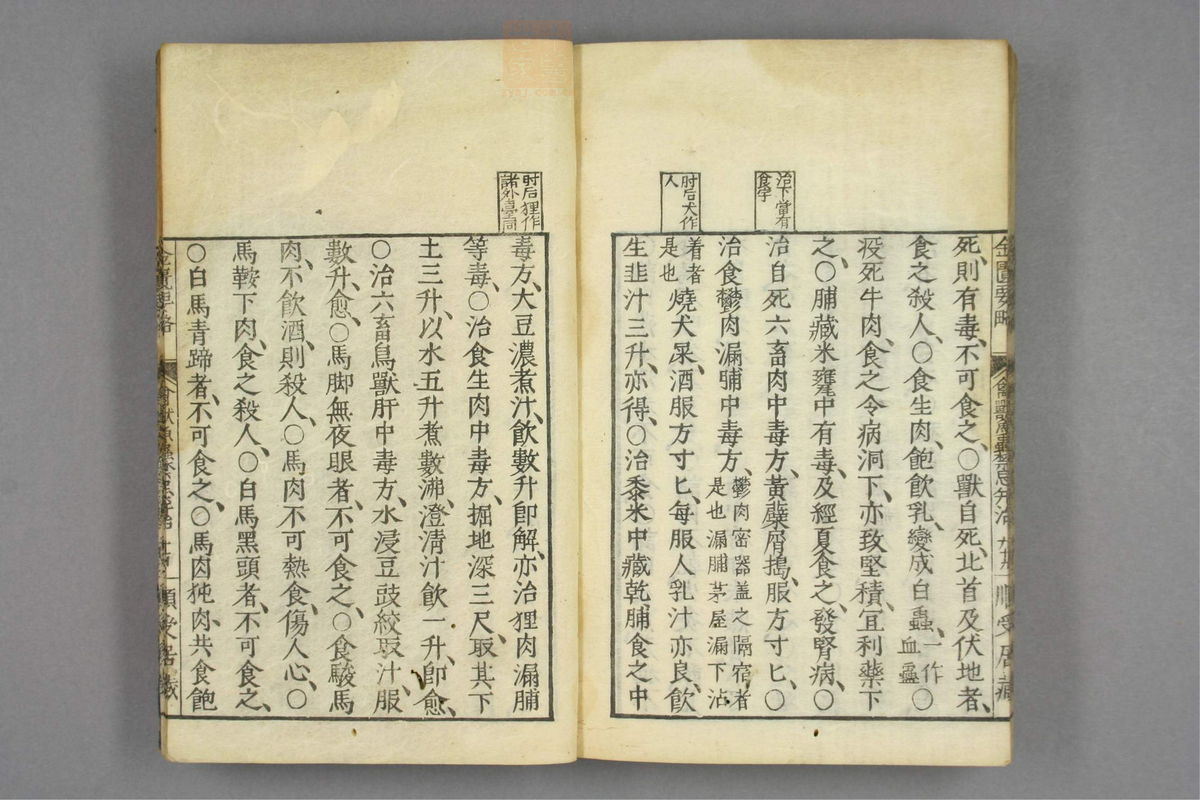 治下當有
食字
肘后犬作
人
死、則有毒、不可食之、〇獸自死、北首及伏地者、
食之殺人、〇食生肉、飽飲乳、變成白蟲、一作血蠱〇
疫死牛肉、食之令病洞下、亦致堅積、宜利藥下
之、〇脯藏米甕中有毒、及經夏食之、發腎病、〇
治自死六畜肉中毒方、黃蘗屑搗、服方寸匕、〇
治食鬱肉漏脯中毒方、鬱肉密器盖之隔宿者
是也漏脯茅屋漏下沾
着者
是也燒犬屎、酒服方寸匕、每服人乳汁亦良、飲
生韭汁三升、亦得、〇治黍米中藏乾脯食之中
金匱要略
順受居藏
肘后狸作
諸外臺同
毒方、大豆濃煮汁、飲數升即解、亦治狸肉漏脯
等毒、〇治食生肉中毒方、掘地深三尺、取其下
土三升、以水五升煮數沸、澄清汁飲一升、即愈、
〇治六畜鳥獸肝中毒方、水浸豆豉絞取汁、服
數升、愈、〇馬脚無夜眼者、不可食之、〇食駿馬
肉、不飲酒、則殺人、〇馬肉不可熱食、傷人心、〇
馬鞍下肉、食之殺人、〇白馬黑頭者、不可食之、
〇白馬青蹄者、不可食之、〇馬肉㹠肉、共食飽